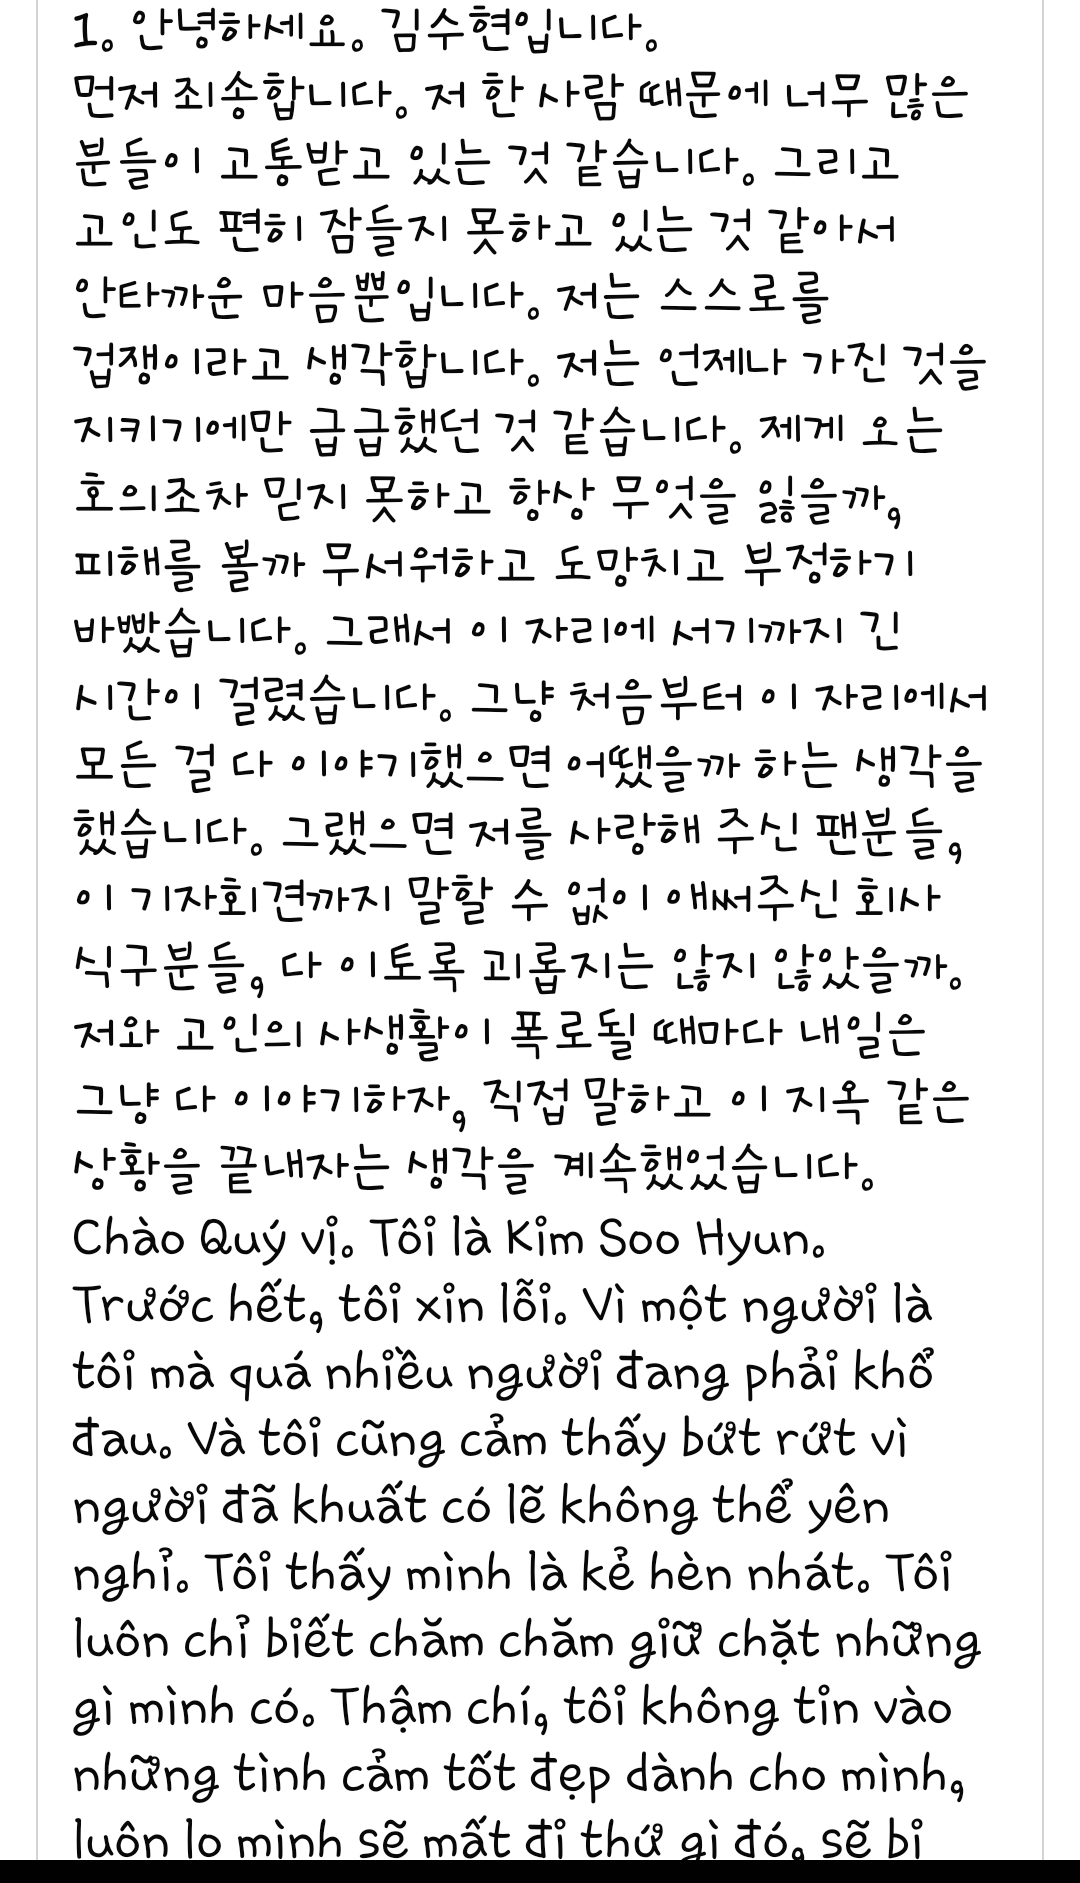 1. 안녕하세요. 김수현입니다.
먼저 죄송합니다. 저 한 사람 때문에 너무 많은
분들이 고통받고 있는 것 같습니다. 그리고
고인도 편히 잠들지 못하고 있는 것 같아서
안타까운 마음뿐입니다. 저는 스스로를
겁쟁이라고 생각합니다. 저는 언제나 가진 것을
지키기에만 급급했던 것 같습니다. 제게 오는
호의조차 믿지 못하고 항상 무엇을 잃을까,
피해를 볼까 무서워하고 도망치고 부정하기
바빴습니다. 그래서 이 자리에 서기까지 긴
시간이 걸렸습니다. 그냥 처음부터 이 자리에서
모든 걸 다 이야기했으면 어땠을까 하는 생각을
했습니다. 그랬으면 저를 사랑해 주신 팬분들,
이 기자회견까지 말할 수 없이 애써주신 회사
식구분들, 다 이토록 괴롭지는 않지 않았을까.
저와 고인의 사생활이 폭로될 때마다 내일은
그냥 다 이야기하자, 직접 말하고 이 지옥 같은
상황을 끝내자는 생각을 계속했었습니다.
Chào Quý vị. Tôi là Kim Soo Hyun.
Trước hết, tôi xin lỗi. Vì một người là
tôi mà quá nhiều người đang phải khổ
đau. Và tôi cũng cảm thấy bứt rứt vì
người đã khuất có lẽ không thể yên
nghỉ. Tôi thấy mình là kẻ hèn nhát. Tôi
luôn chỉ biết chăm chăm giữ chặt những
gì mình có. Thậm chí, tôi không tin vào
những tình cảm tốt đẹp dành cho mình,
luôn lo mình sẽ mất đi thứ gì đó, sẽ bi